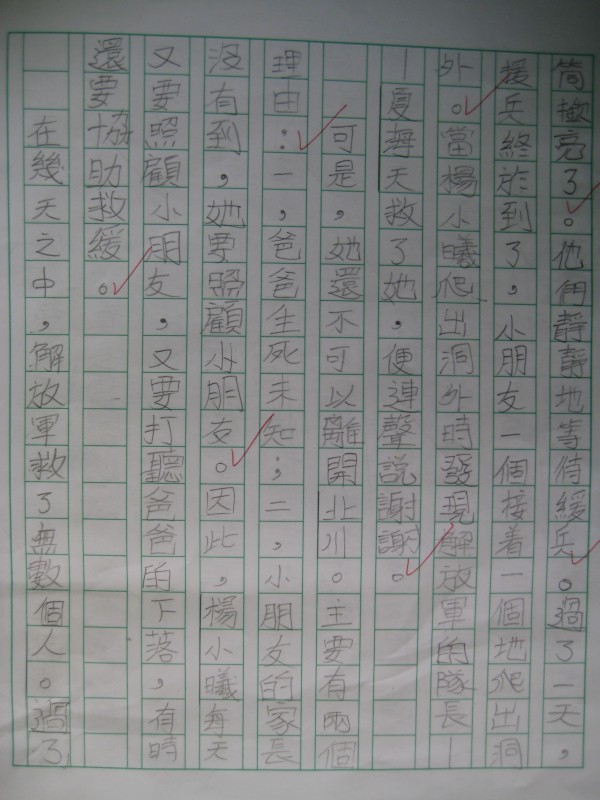 筒撳亮了。他們靜靜地等待緩兵。過了一天，
援兵終於到了，小朋友一個接着一個地爬出洞
外。當楊小曦爬出洞外時發現解放軍的隊長—
—夏每天救了她，便連聲說謝謝。
可是，她還不可以離開北川。主要有兩個
理由：一，爸爸生死未知；二，小朋友的家長
沒有到，她要照顧小朋友。因此，楊小曦每天
又要照顧小朋友，又要打聽爸爸的下落，有時
還要協助救緩。
在幾天之中，解放軍救了無數個人。過了